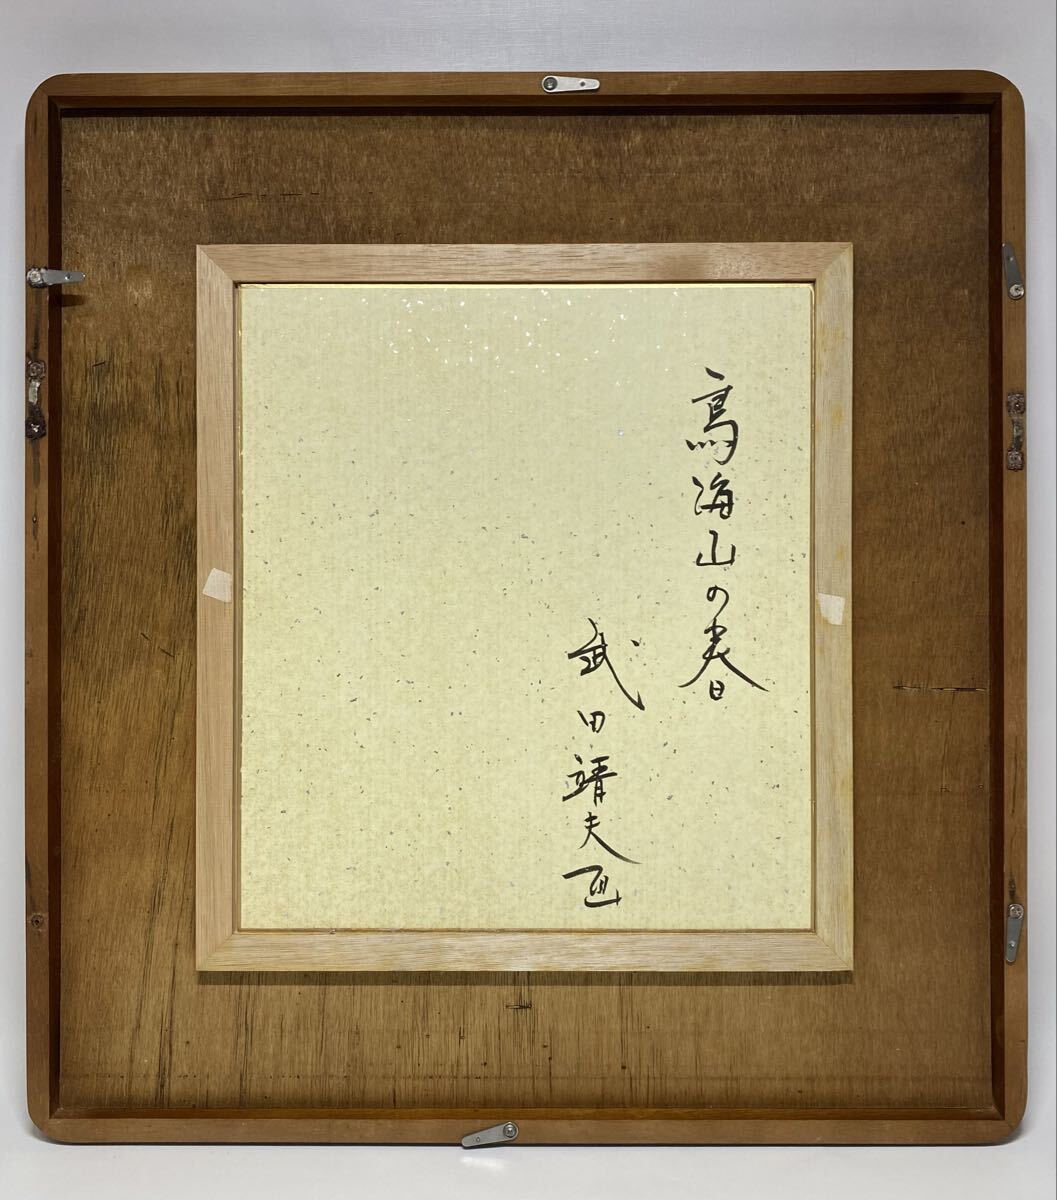 鳥海山の春
武田靖夫画